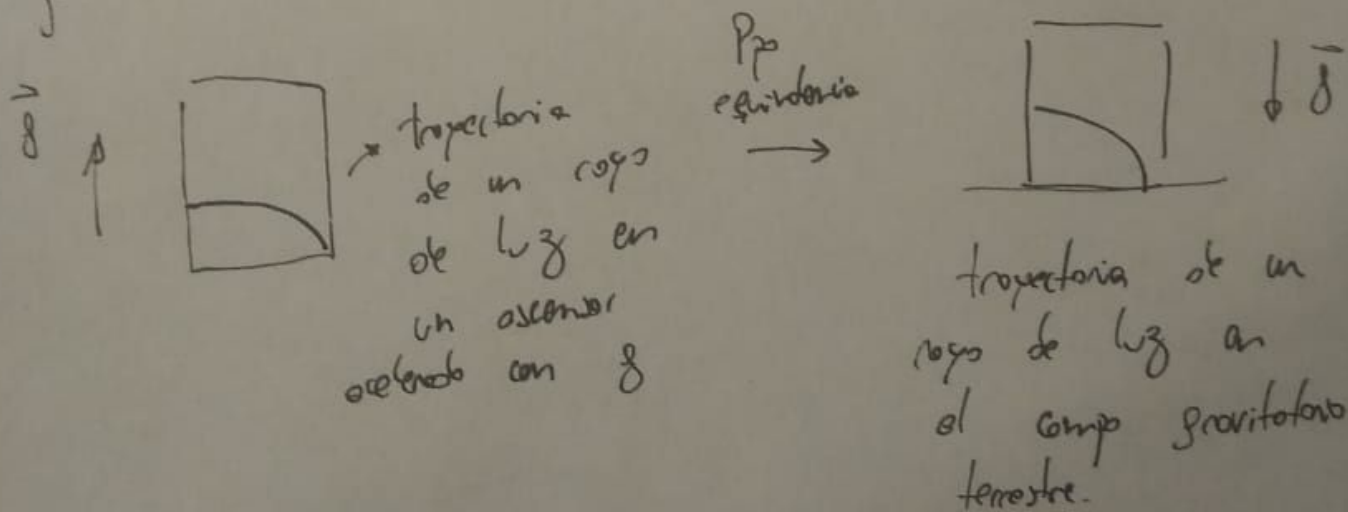 g
trayectoria
de un rayo
de luz en
un ascensor
acelerado con g
Ppo
equivalencia
g
trayectoria de un
rayo de luz en
el campo gravitatorio
terrestre.